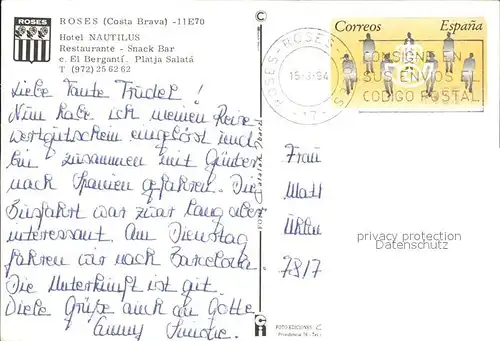 ROSES
ROSES (Costa Brava) -11E70
Hotel NAUTILUS
Restaurante - Snack Bar
c. El Bergantí. Platja Salatá
T (972) 25 62 62
Liebe Tante Trudel!
Nun habe ich meinen Reise
wertgutschein eingelöst und
bin zusammen mit Günter
nach Spanien gefahren. Die
Busfahrt war zwar lang aber
interessant. Am Dienstag
fahren wir nach Barcelona.
Die Unterkunft ist gut.
Viele Grüße auch an Gotte
Correos España
ROSES-ROSES
15-3-94
-17-
CONSIGNE EN
SUS ENVIOS EL
CODIGO POSTAL
Frau
Matt
Uhlan
7817
privacy protection
Datenschutz
FOTO EDICIONES C